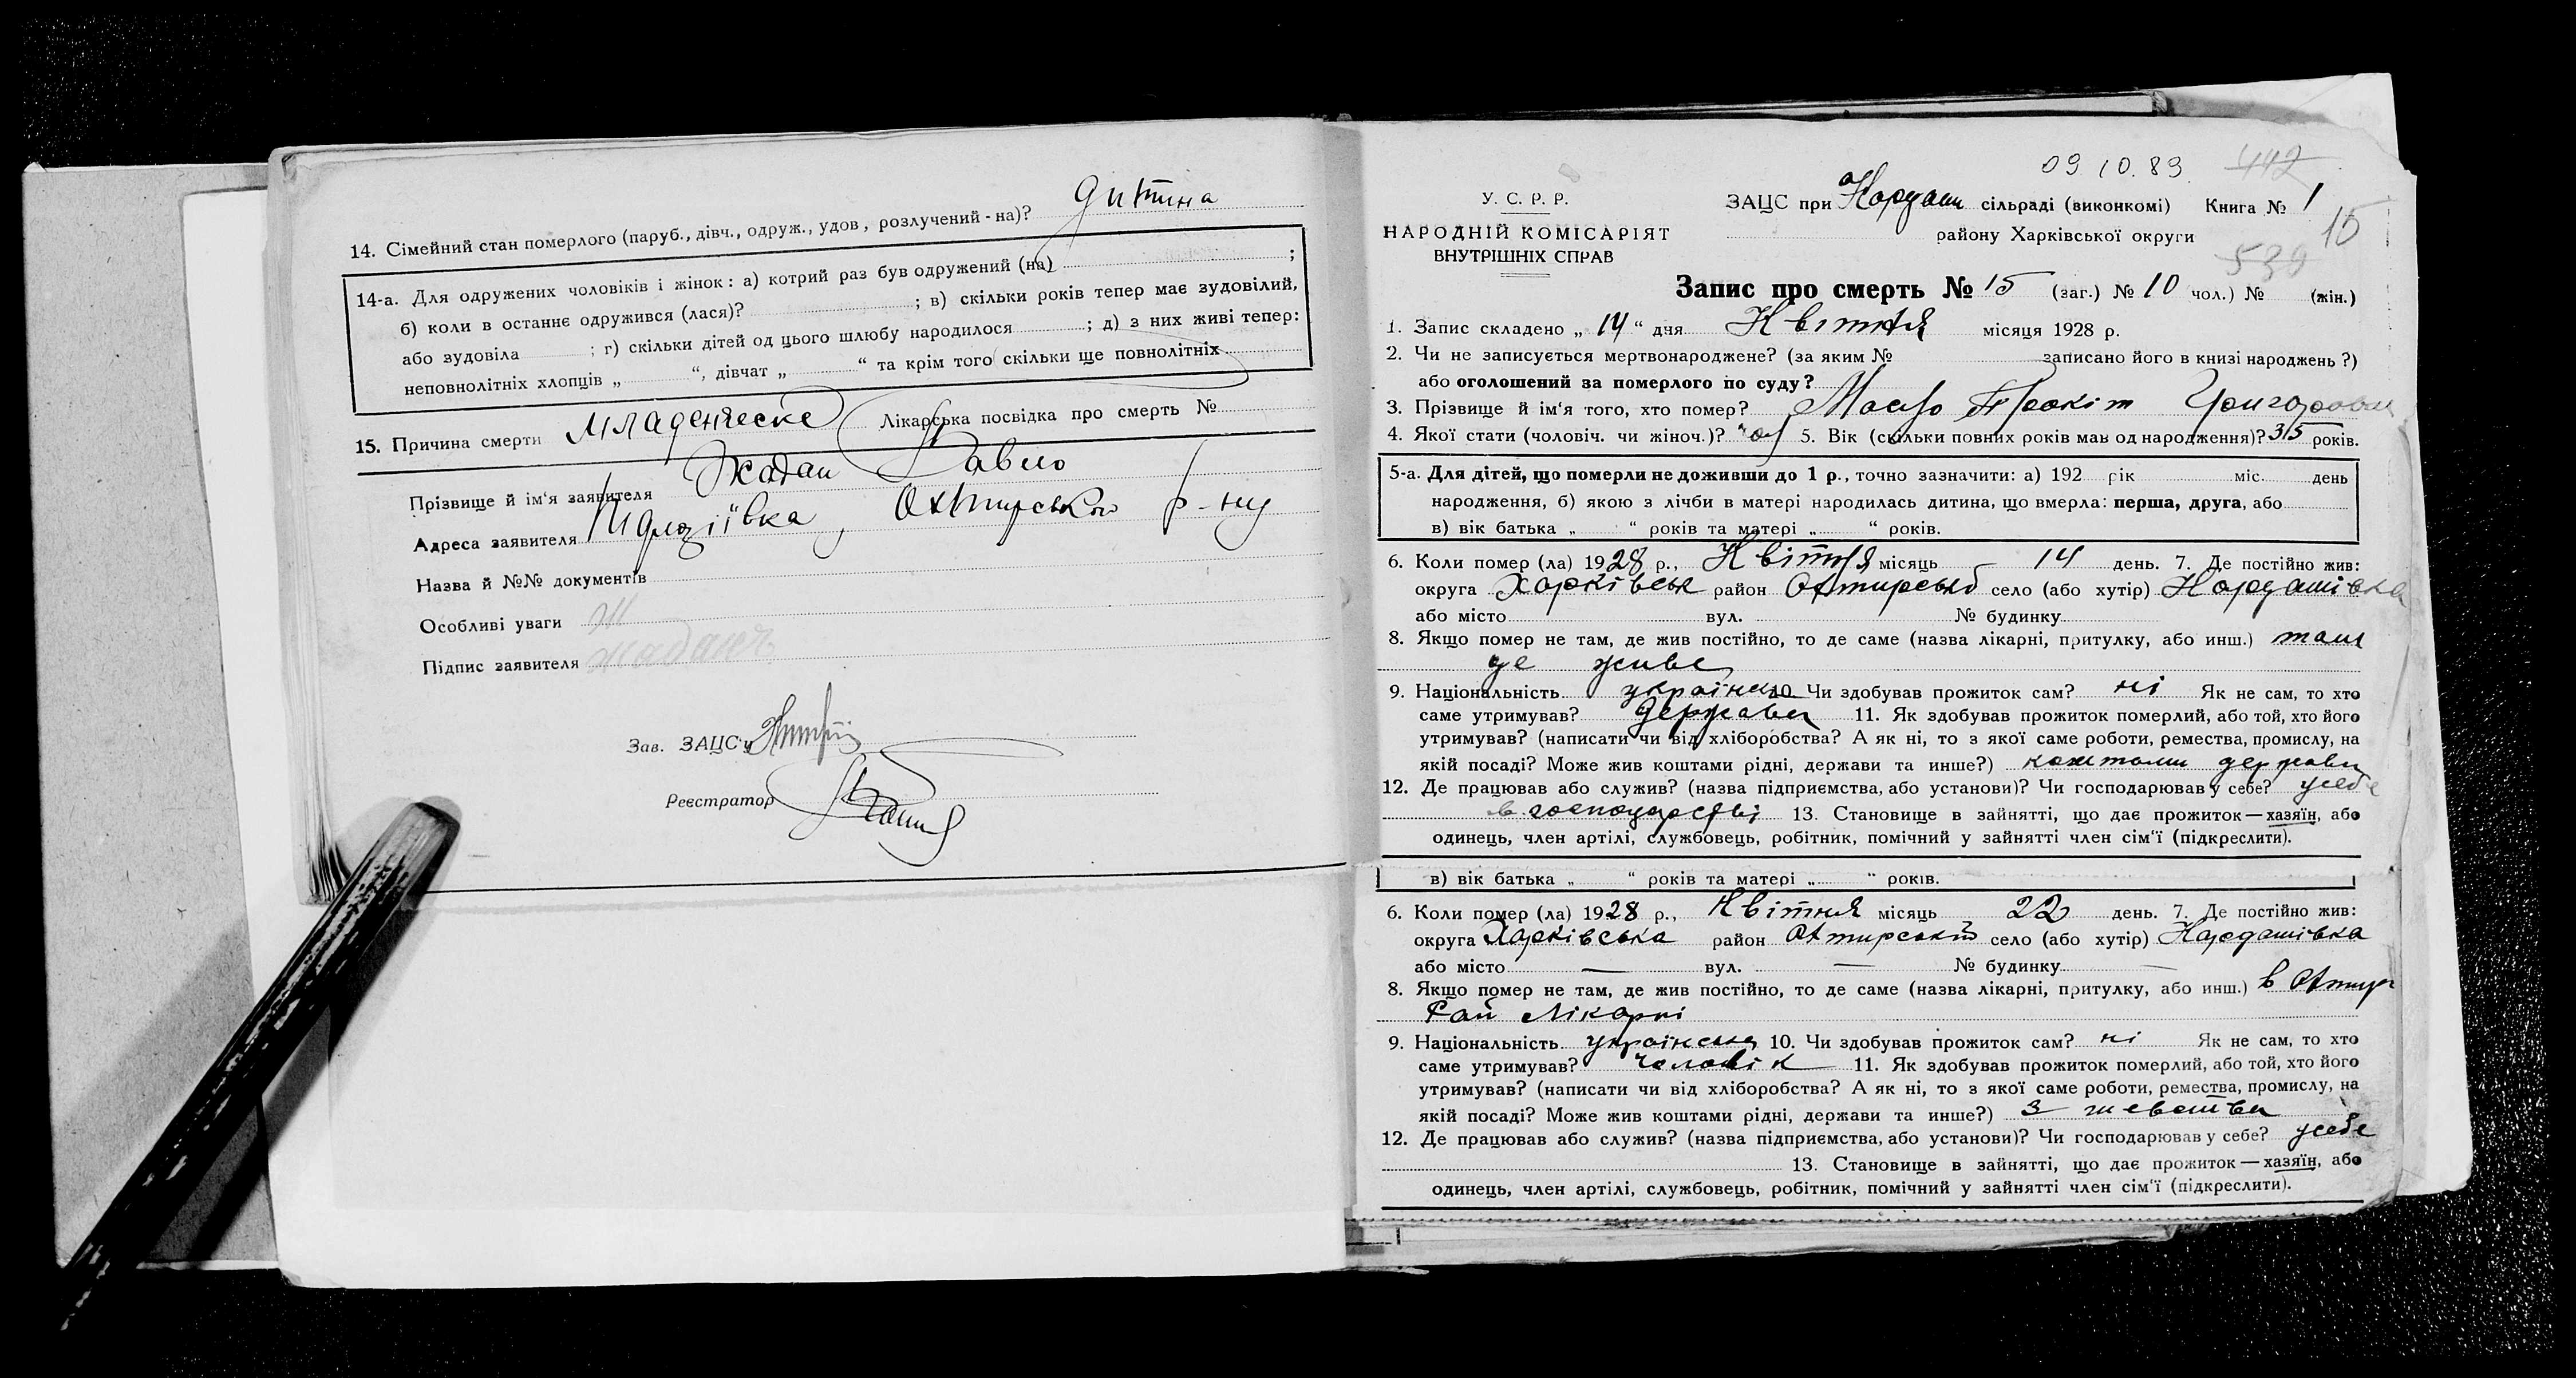 14. Сімейний стан померлого (паруб., дівч., одруж., удов, розлучений - на)? дитина
14-а. Для одружених чоловіків і жінок: а) котрий раз був одружений (на) ;
б) коли в останнє одружився (лася)? ; в) скільки років тепер має зудовілий,
або зудовіла ; г) скільки дітей од цього шлюбу народилося ; д) з них живі тепер:
неповнолітніх хлопців „ “, дівчат „ “ та крім того скільки ще повнолітніх
15. Причина смерти младенческе Лікарська посвідка про смерть №
Прізвище й ім‘я заявителя Жадан Павло
Адреса заявителя Охтирсько р-ну
Назва й №№ документів
Особливі уваги
Підпис заявителя
Зав. ЗАЦС‘у
Реєстратор
09 10.83. 442
У. С. Р. Р.
НАРОДНІЙ КОМІСАРІЯТ
ВНУТРІШНІХ СПРАВ
ЗАЦС при Кардаш сільраді (виконкомі) Книга № 1
15
району Харківської округи
530
Запис про смерть № 15 (заг.) № 10 чол.) № (жін.)
1. Запис складено „ 14 “ дня Квітня місяця 1928 р.
2. Чи не записується мертвонароджене? (за яким № записано його в книзі народжень ?)
або оголошений за померлого по суду?
3. Прізвище й ім‘я того, хто помер? Григорович
4. Якої стати (чоловіч. чи жіноч.)? чол 5. Вік (скільки повних років мав од народження)? 35 років.
5-а. Для дітей, що померли не доживши до 1 р., точно зазначити: а) 192 рік міс. день
народження, б) якою з лічби в матері народилась дитина, що вмерла: перша, друга, або
в) вік батька „ “ років та матері „ “ років.
6. Коли помер (ла) 1928 р., Квітня місяць 14 день. 7. Де постійно жив:
округа Харківськ район Охтирський село (або хутір) Кардашівка
або місто вул. № будинку
8. Якщо помер не там, де жив постійно, то де саме (назва лікарні, притулку, або инш.) там
де живе
9. Національність українец 10. Чи здобував прожиток сам? ні Як не сам, то хто
саме утримував? держава 11. Як здобував прожиток померлий, або той, хто його
утримував? (написати чи від хліборобства? А як ні, то з якої саме роботи, ремества, промислу, на
якій посаді? Може жив коштами рідні, держави та инше?) коштами держави
12. Де працював або служив? (назва підприємства, або установи)? Чи господарював у себе? усебе
в господарстві 13. Становище в зайнятті, що дає прожиток — хазяїн, або
одинець, член артілі, службовець, робітник, помічний у зайнятті член сім‘ї (підкреслити).
в) вік батька „ “ років та матері „ “ років.
6. Коли помер (ла) 1928 р., Квітня місяць 22 день. 7. Де постійно жив:
округа Харківська район Охтирський село (або хутір) Кардашівка
або місто — вул. — № будинку —
8. Якщо помер не там, де жив постійно, то де саме (назва лікарні, притулку, або инш.) в Охтир
Рай Лікарні
9. Національність українська 10. Чи здобував прожиток сам? ні Як не сам, то хто
саме утримував? чоловік 11. Як здобував прожиток померлий, або той, хто його
утримував? (написати чи від хліборобства? А як ні, то з якої саме роботи, ремества, промислу, на
якій посаді? Може жив коштами рідні, держави та инше?) З шевства
12. Де працював або служив? (назва підприємства, або установи)? Чи господарював у себе? усебе
13. Становище в зайнятті, що дає прожиток — хазяїн, або
одинець, член артілі, службовець, робітник, помічний у зайнятті член сім‘ї (підкреслити).